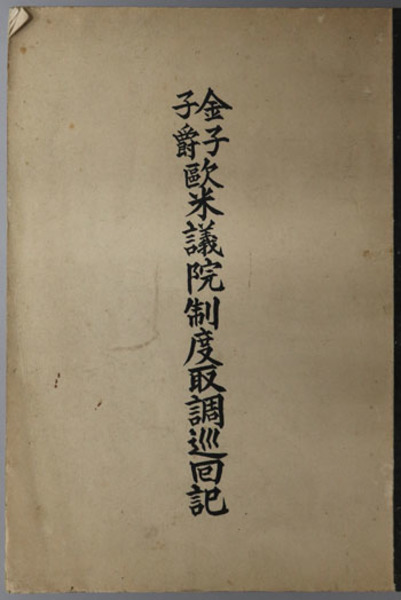 金子
子爵
歐米議院制度取調巡回記